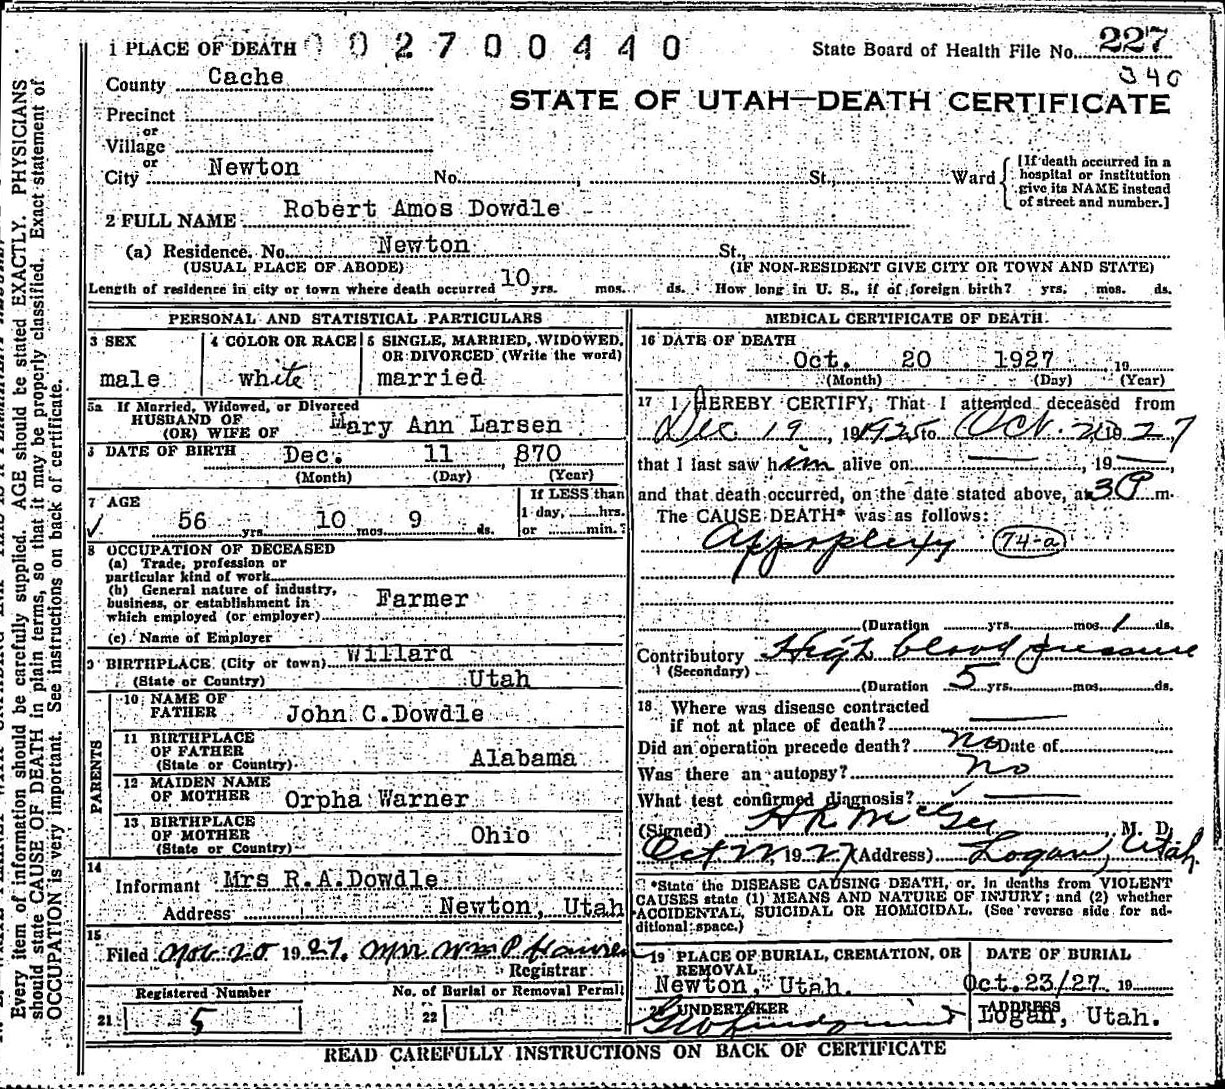 1 PLACE OF DEATH 0 0 2 7 0 0 4 4 0 State Board of Health File No. 227
340
County Cache
STATE OF UTAH—DEATH CERTIFICATE
Precinct
or
Village
or
City Newton No. , St., Ward [If death occurred in a hospital or institution give its NAME instead of street and number.]
2 FULL NAME Robert Amos Dowdle
(a) Residence. No. Newton St.,
(USUAL PLACE OF ABODE) (IF NON-RESIDENT GIVE CITY OR TOWN AND STATE)
Length of residence in city or town where death occurred 10 yrs. mos. ds. How long in U. S., if of foreign birth? yrs. mos. ds.
PERSONAL AND STATISTICAL PARTICULARS
3 SEX
male
4 COLOR OR RACE
white
5 SINGLE, MARRIED, WIDOWED,
OR DIVORCED (Write the word)
married
5a If Married, Widowed, or Divorced
HUSBAND OF
(OR) WIFE OF Mary Ann Larsen
6 DATE OF BIRTH Dec. 11 , 870
(Month) (Day) (Year)
7 AGE
56 yrs. 10 mos. 9 ds.
If LESS than
1 day, hrs.
or min.?
8 OCCUPATION OF DECEASED
(a) Trade, profession or
particular kind of work
(b) General nature of industry,
business, or establishment in
which employed (or employer) Farmer
(c) Name of Employer
9 BIRTHPLACE (City or town) Willard
(State or Country) Utah
PARENTS
10 NAME OF
FATHER John C.Dowdle
11 BIRTHPLACE
OF FATHER
(State or Country) Alabama
12 MAIDEN NAME
OF MOTHER Orpha Warner
13 BIRTHPLACE
OF MOTHER
(State or Country) Ohio
14
Informant Mrs R.A.Dowdle
Address Newton, Utah
15
Filed Nov. 20 1927. Wm P.
Registrar
Registered Number
21 5
No. of Burial or Removal Permit
22
MEDICAL CERTIFICATE OF DEATH.
16 DATE OF DEATH
Oct. 20 1927 19
(Month) (Day) (Year)
17 I HEREBY CERTIFY, That I attended deceased from
Dec 19 , 19 1925 to Oct. 20 19 27
that I last saw him alive on , 19 ,
and that death occurred, on the date stated above, at 3 P m.
The CAUSE DEATH* was as follows:
Appoplexy 74-a
(Duration yrs. mos. 1 ds.
Contributory High blood pressure
(Secondary)
(Duration 5 yrs. mos. ds.
18 Where was disease contracted
if not at place of death?
Did an operation precede death? no Date of
Was there an autopsy? no
What test confirmed diagnosis?
(Signed) H R McGee , M. D.
Oct 22 19 27 (Address) Logan, Utah
*State the DISEASE CAUSING DEATH, or, in deaths from VIOLENT
CAUSES state (1) MEANS AND NATURE OF INJURY; and (2) whether
ACCIDENTAL, SUICIDAL OR HOMICIDAL. (See reverse side for ad-
ditional space.)
19 PLACE OF BURIAL, CREMATION, OR
REMOVAL
Newton, Utah.
DATE OF BURIAL
Oct. 23/27 19
20 UNDERTAKER
ADDRESS
Logan, Utah.
READ CAREFULLY INSTRUCTIONS ON BACK OF CERTIFICATE
Every item of information should be carefully supplied. AGE should be stated EXACTLY. PHYSICIANS
should state CAUSE OF DEATH in plain terms, so that it may be properly classified. Exact statement of
OCCUPATION is very important. See instructions on back of certificate.